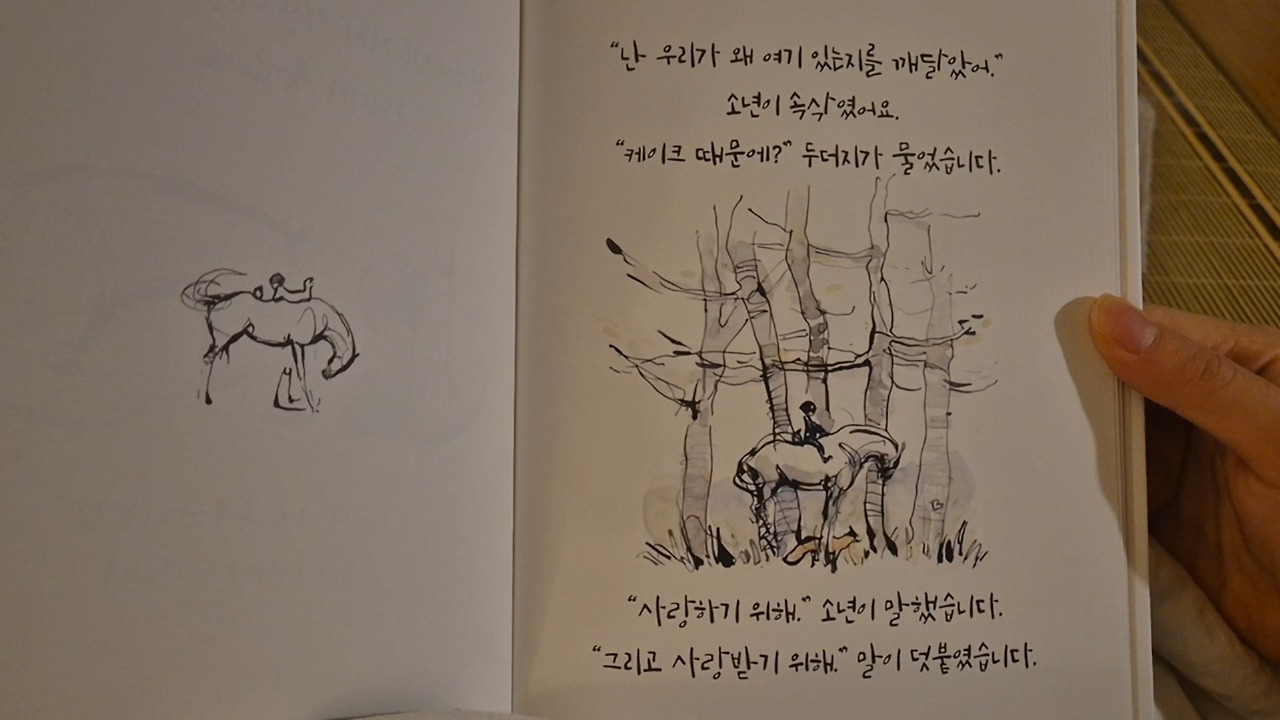 “난 우리가 왜 여기 있는지를 깨달았어.”
소년이 속삭였어요.
“케이크 때문에?” 두더지가 물었습니다.
“사랑하기 위해.” 소년이 말했습니다.
“그리고 사랑받기 위해.” 말이 덧붙였습니다.